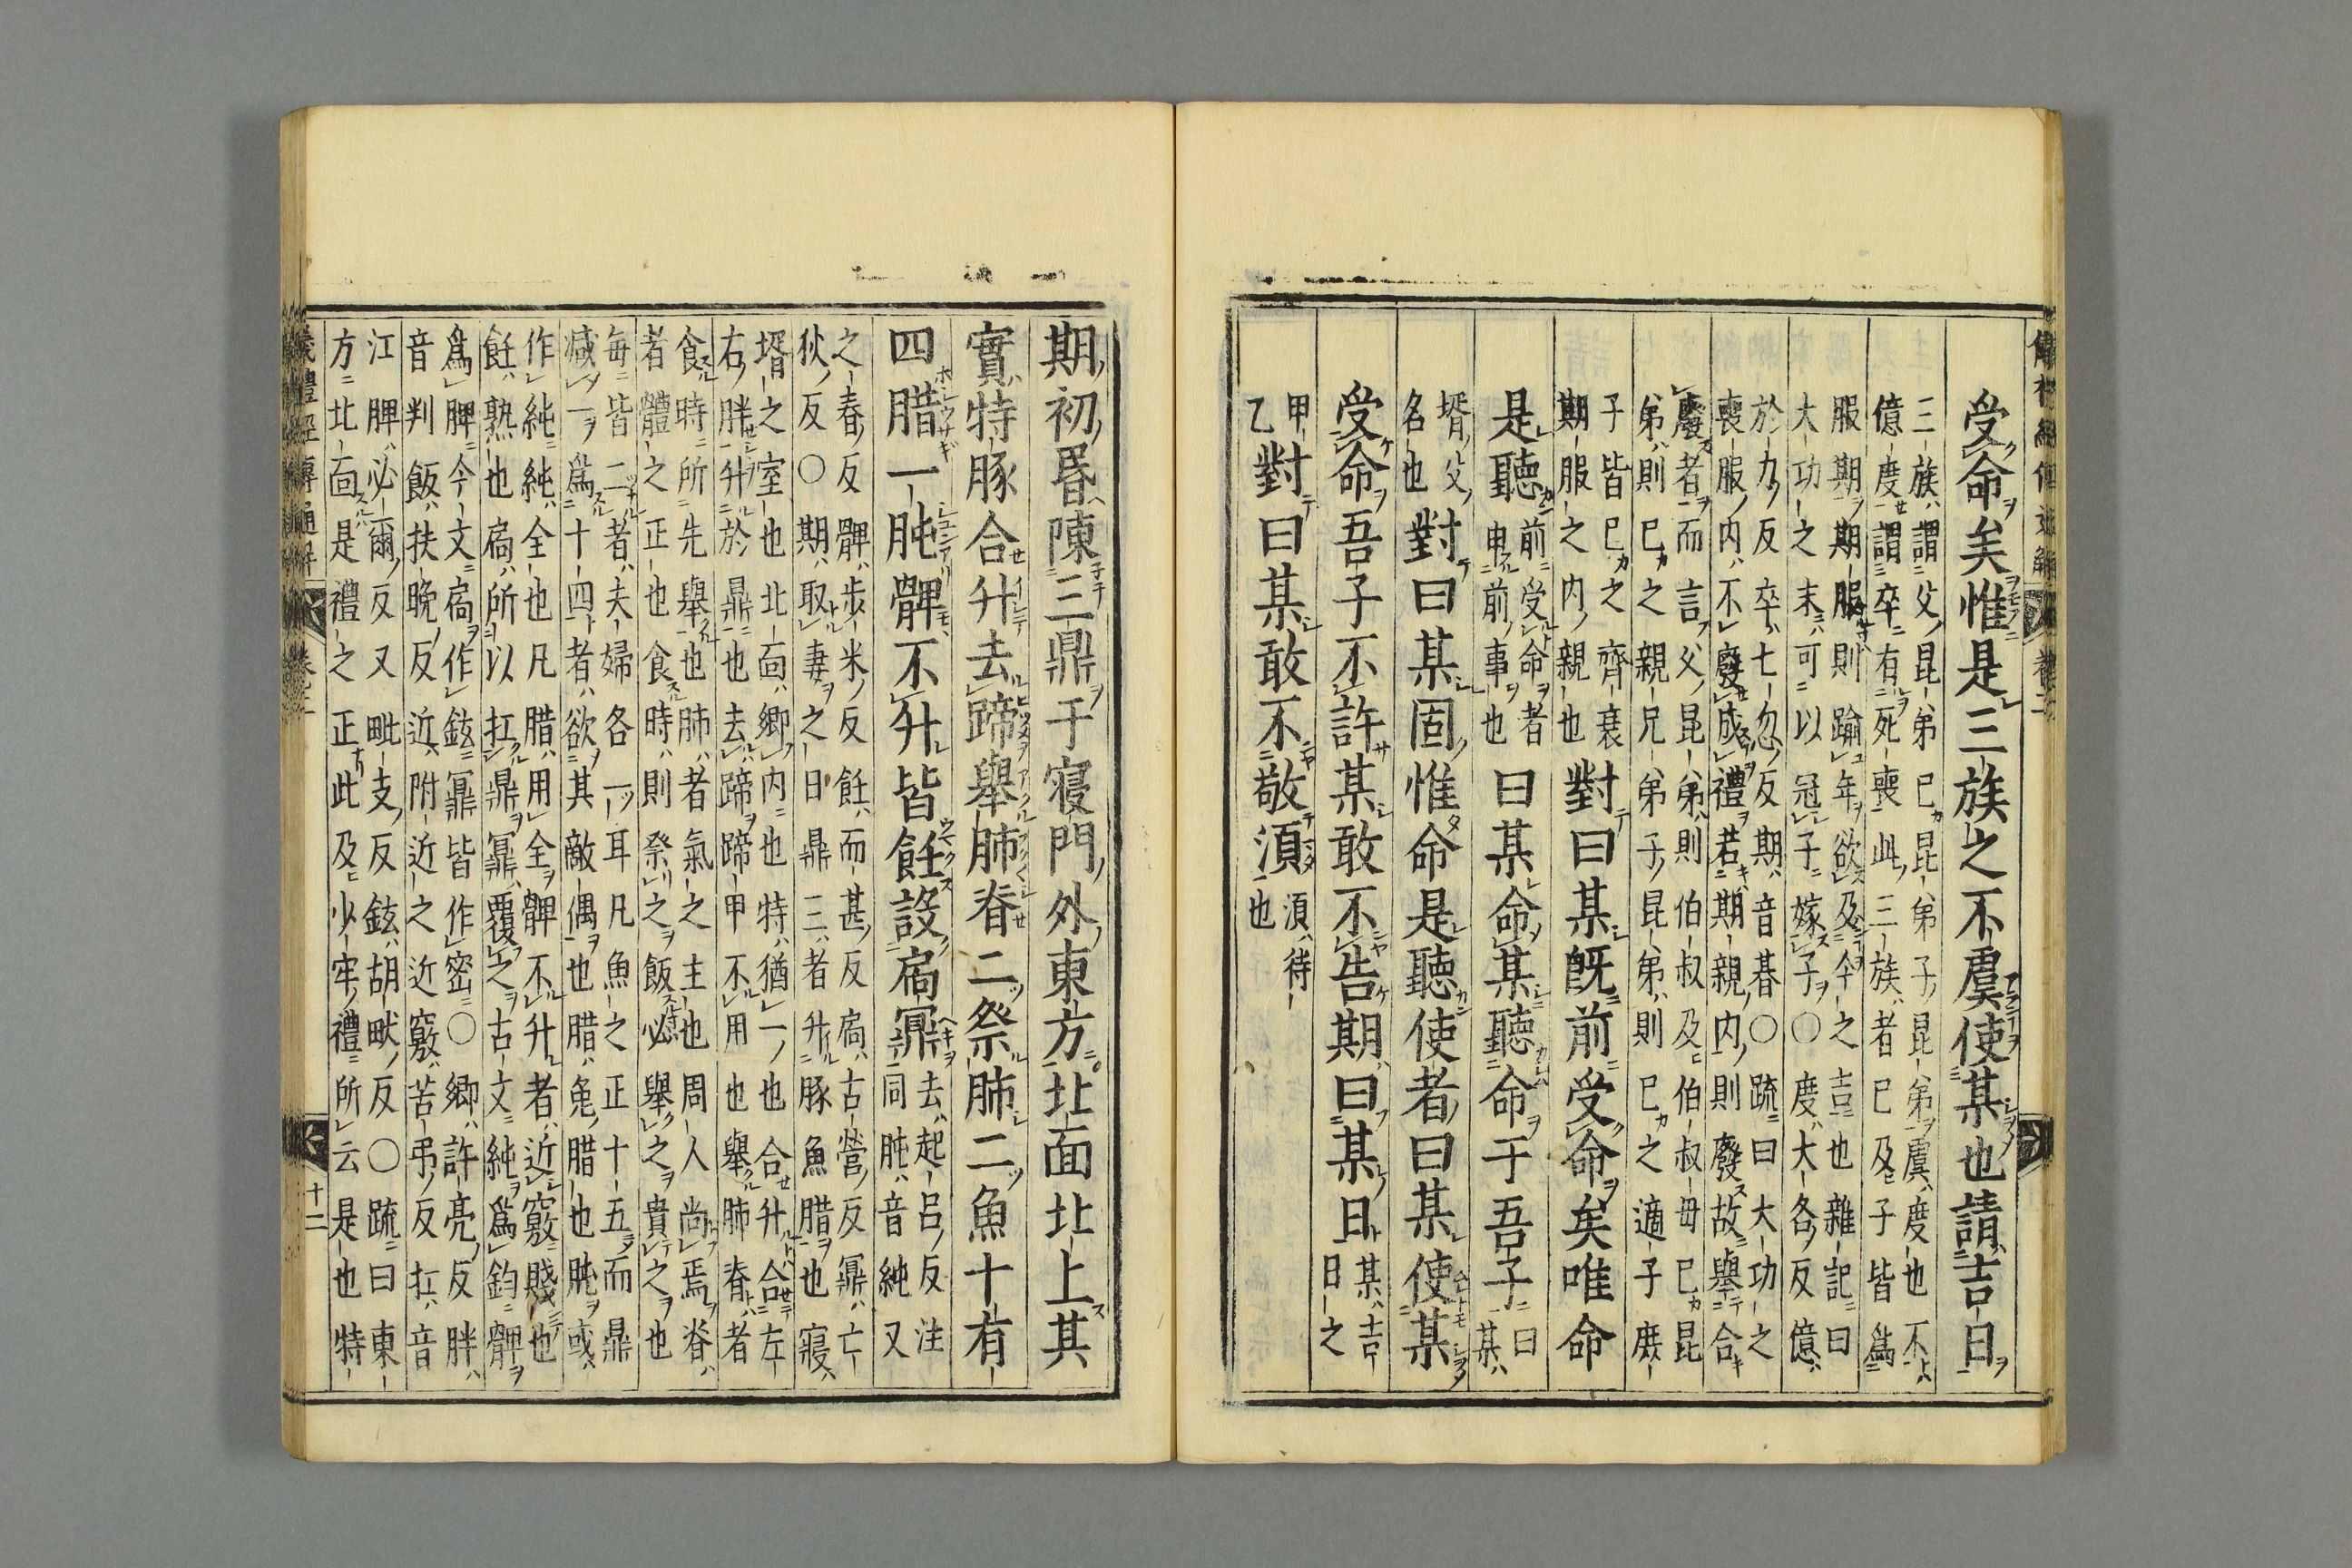 受命矣惟是三族之不虞使某也請吉日
三族謂父昆弟已昆弟子昆弟虞度也不
億度謂卒有死喪此三族者已及子皆爲
服期期服則踰年欲及今之吉也雜記曰
大功之末可以冠子嫁子〇度大各反億
於力反卒七忽反期音朞〇疏曰大功之
喪服内不廢成禮若期親内則廢故舉合
廢者而言父昆弟則伯叔及伯叔母已昆
弟則已之親兄弟子昆弟則已之適子庶
子皆已之齊衰
期服之内親也
對曰某既前受命矣唯命
是聽
前受命者
申前事也
曰某命某聽命于吾子
曰
某
壻父
名也
對曰某固惟命是聽使者曰某使某
受命吾子不許某敢不告期曰某日
某吉
日之
甲
乙
對曰某敢不敬須
須待
也
期初昏陳三鼎于寝門外東方北面北上其
實特豚合升去蹄舉肺脊二祭肺二魚十有
四腊一肫髀不升皆飪設扃鼏
去起吕反注
同肫音純又
之春反髀步米反飪而甚反扃古營反鼏亡
狄反〇期取妻之日鼎三者升豚魚腊也寢
壻之室也北面郷内也特猶一也合升合左
右胖升於鼎也去蹄蹄甲不用也舉肺脊者
食時所先舉也肺者氣之主也周人尚焉脊
者體之正也食時則祭之飯必舉之貴之也
毎皆二者夫婦各一耳凡魚之正十五而鼎
减一爲十四者欲其敵偶也腊兔腊也肫或
作純純全也凡腊用全髀不升者近竅賤也
飪熟也扃所以扛鼎鼏覆之古文純爲鈞髀
爲脾今文扃作鉉鼏皆作密〇郷許亮反胖
音判飯扶晩反近附近之近竅苦弔反扛音
江脾必爾反又毗支反鉉胡畎反〇疏曰東
方北面是禮之正此及少牢禮所云是也特
儀禮經傳通解
十二